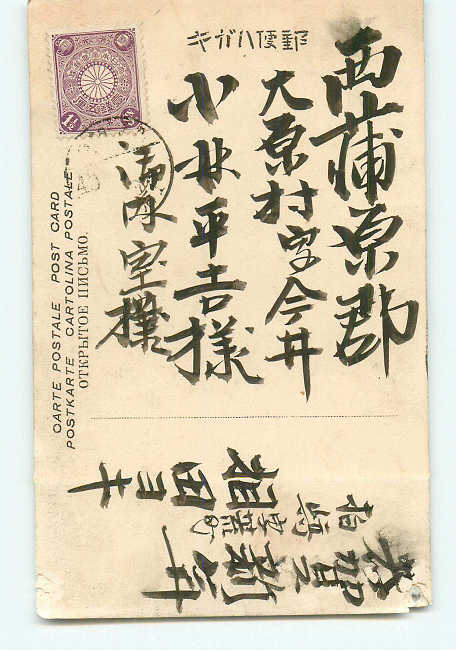 郵便ハガキ
西蒲原郡
大原村字今井
小林平吉様
御内室様
恭賀新年
柏崎
1½
CARTE POSTALE POST CARD
POSTKARTE CARTOLINA POSTALE
ОТКРЫТОЕ ПИСЬМО.